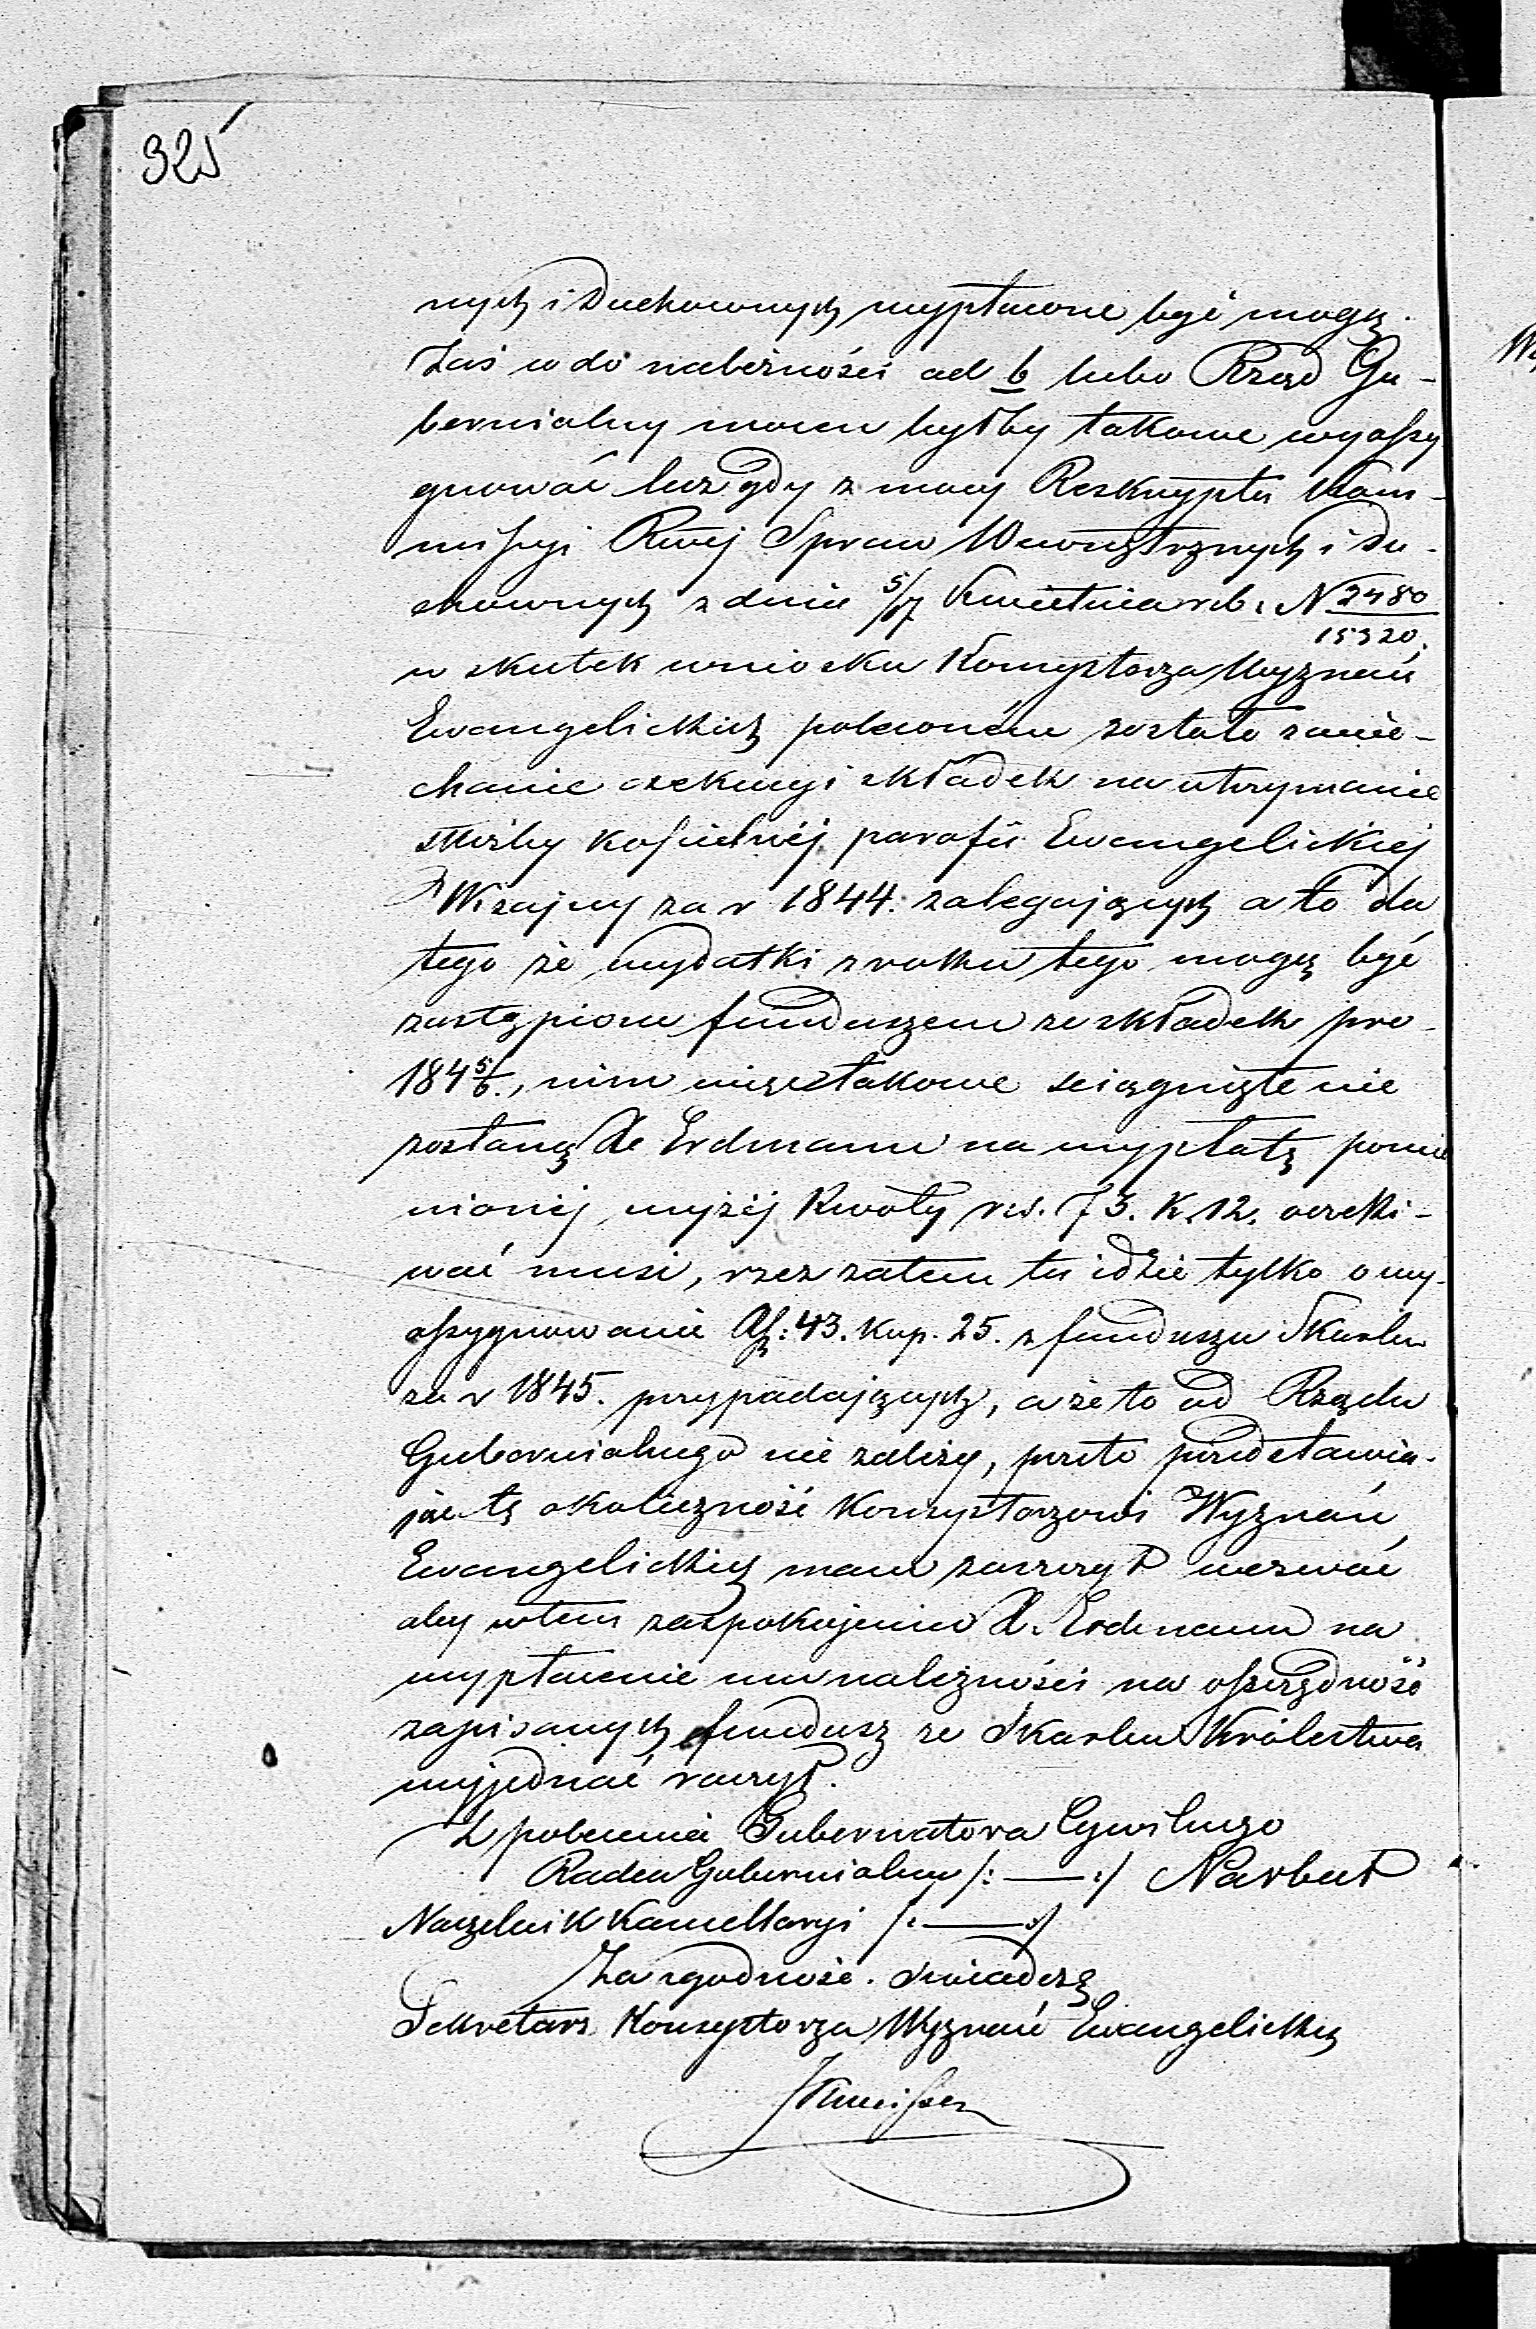 325
nych i Duchownych wypłacone być mogą.
Zaś co do należności ad b lubo Rząd Gu-
bernialny mocen byłby takowe wyassy
gnować lecz gdy z mocy Reskryptu Kom-
missyi Rwéj Spraw Wewnętrznych i Du-
chownych z dnia 5/17 Kwietnia rb. N 2480/15320.
w skutek wniosku Konsystorza Wyznań
Ewangelickich poleconém zostało zanie-
chanie exekucyi składek na utrzymanie
służby kościelnéj parafii Ewangelickiej
Wiżajny za r 1844. zalegających a to dla
tego że wydatki z roku tego mogą być
zastąpione funduszem ze składek pro
184 5/6., nim więc takowe ściągnięte nie
zostaną X. Erdmann na wypłatę pomie
nionéj wyżéj Kwoty rs. 73. k. 12. oczeki-
wać musi, rzecz zatem tu idzie tylko o wy-
assygnowanie Rs: 43. kop. 25. z funduszu Skarbu
za r 1845. przypadających, a że to od Rządu
Gubernialnego nie zależy, przeto przedstawia-
jąc tę okoliczność Konsystorzowi Wyznań
Ewangelickich mam zaszczyt wezwać
aby w tem zaspokojeniu X. Erdmann na
wypłacenie mu należności na oszczędność
zapisanych fundusz ze Skarbu Królestwa
wyjednać raczył.
Z polecenia Gubernatora Cywilnego
Radca Gubernialny /: — :/ Narbut
Naczelnik Kancellaryi /: — :/
Za zgodność. Świadczę
Sekretarz Konsystorza Wyznań Ewangelickich